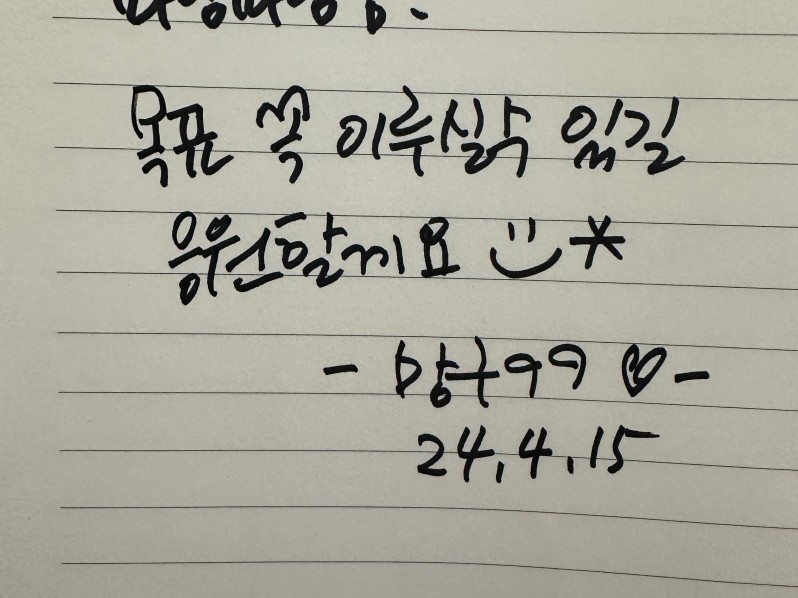 목표 꼭 이루실수 있길
응원할게요 :) *
- 망구99 ♡ -
24.4.15